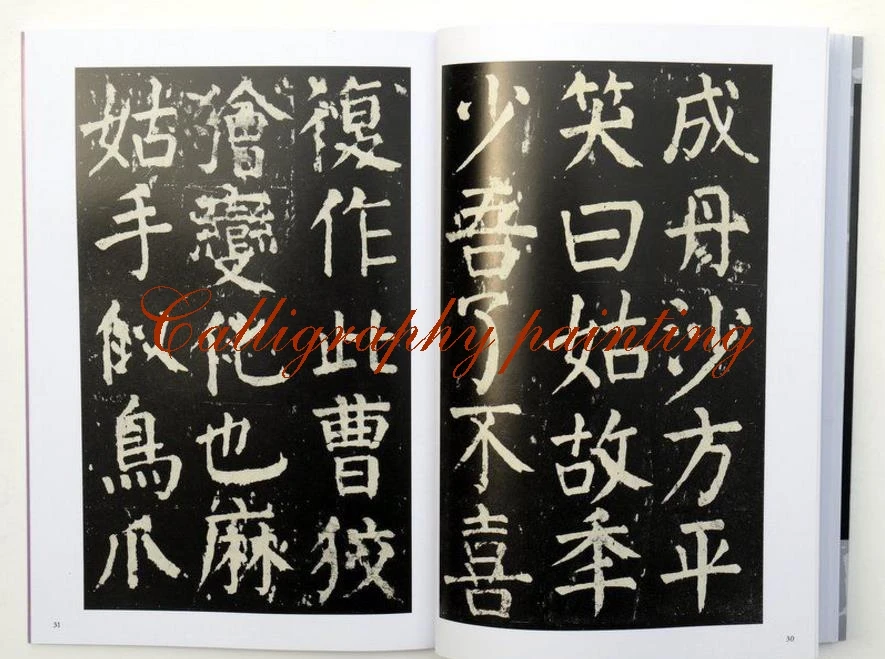 成丹沙方平
笑曰姑故秊
少吾了不喜
復作此曹狡
獪變化也麻
姑手似鳥爪
30
31
Calligraphy painting